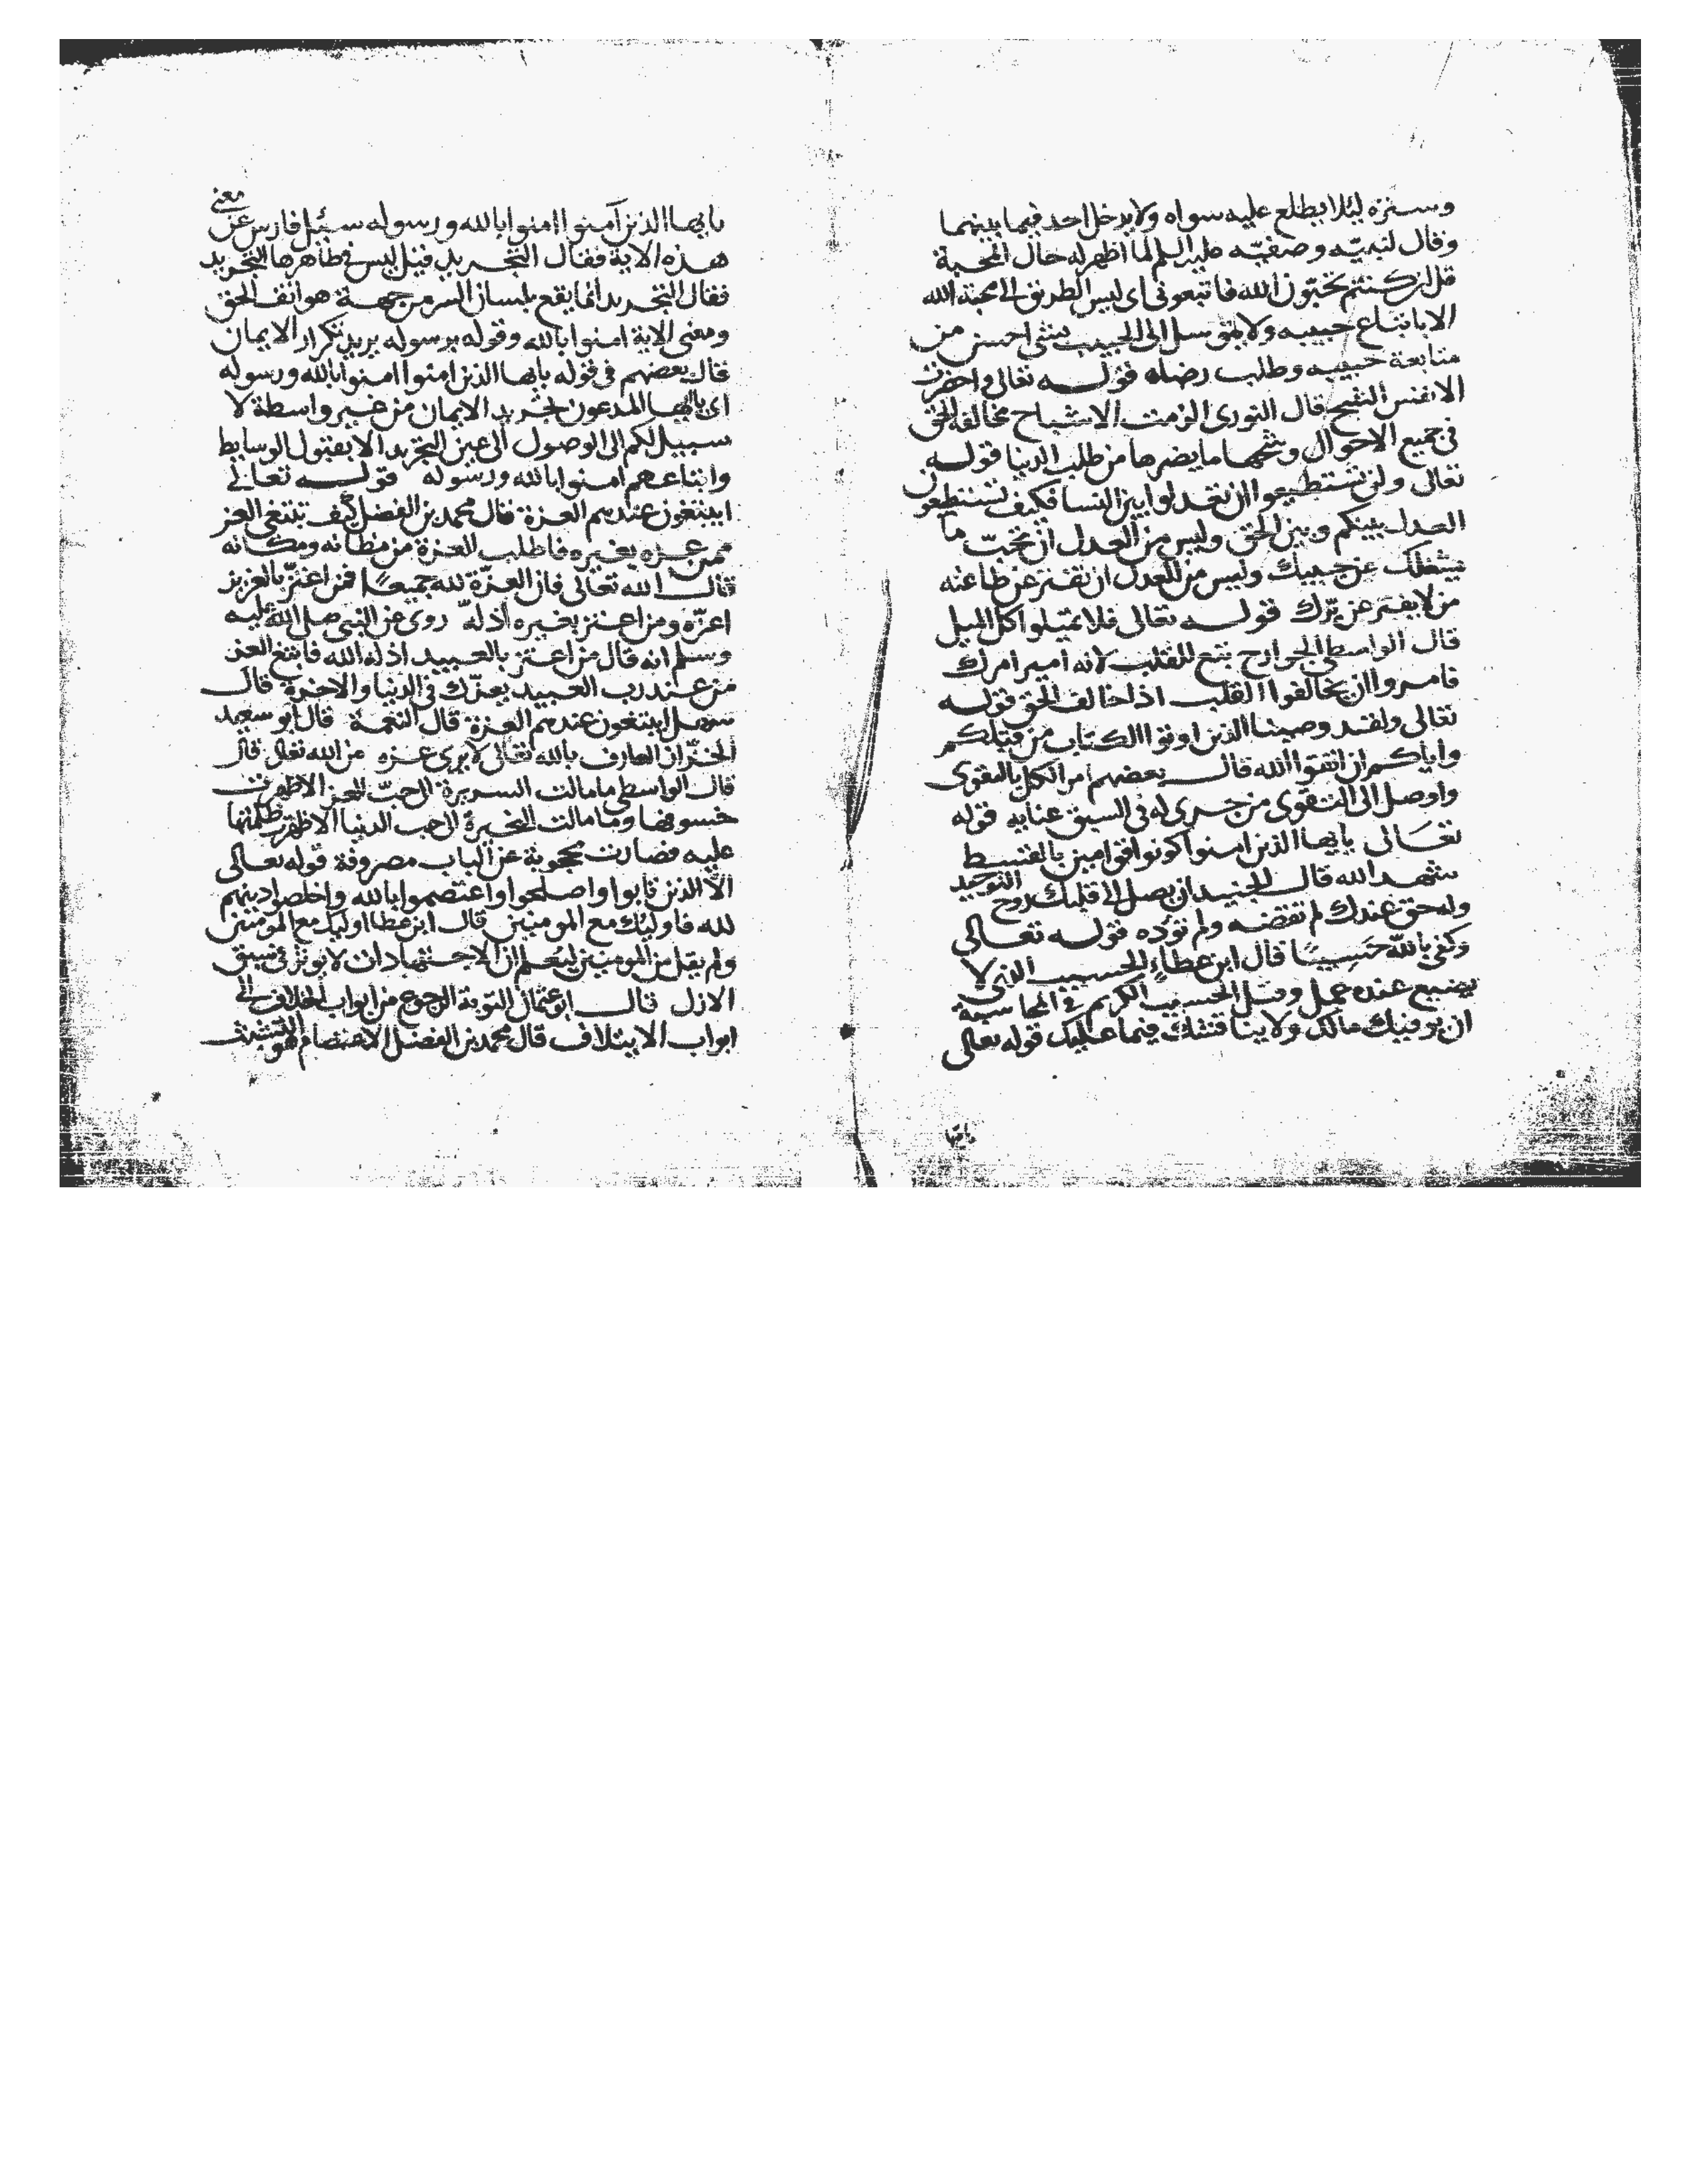 وستره ليلا يطلع عليه سواه ولا يدخل احد فيما بينهما
وقال لنبيّه وصفيّه عليه السلم لما اظهر له حال المحبة
قل ان كنتم تحبون الله فاتبعوني اى ليس الطريق الى محبة الله
الا باتباع حبيبه ولا يتوسل الى الحبيب بشى احسن من
متابعة حبيبه وطلب رضاه قولـــه تعالى واحضرت
الانفس الشح قال النورى الزمت الاشباح مخالفة الحق
فى جميع الاحوال وشحها ما يضرها من طلب الدنيا قولـــه
تعالى ولن تستطيعوا ان تعدلوا بين النسا فكيف تستطيعون
العدل بينكم وبين الحق وليس من العدل ان تحبّ ما
يشغلك عن حبيبك وليس من العدل ان تفتر عن طاعته
من لا يفتر عن برّك قولـــه تعالى فلا تميلوا كل الميل
قال الواسطى الجوارح تبع للقلب لانه امير امرك
فامروا ان يخالفوا القلب اذا خالف الحق قولـــه
تعالى ولقد وصينا الذين اوتوا الكتاب من قبلكم
واياكم ان اتقوا الله قالـــ بعضهم امر الكل بالتقوى
واوصل الى التقوى من جرى له فى السبق عنايه قوله
تعَــالى يا ايها الذين امنوا كونوا قوامين بالقسط
شهدا لله قالـــ الجنيد ان يصل الى قلبك روح التوحيد
وله حق عندك لم تقضه ولم تؤده قولـــه تعــالى
وكفى بالله حَسِيبًا قال ابن عطاءٍ الحسيب الذى لا
يضيع عنده عمل وقيل الحسيب الكريم فى المحاسبة
ان يوفيك مالك ولا يناقشك فيما عليك قوله تعالى
يا ايها
يا ايها الذين آمنوا امنوا بالله ورسوله سـئل فارس عن معنى
هذه الاية فقال التجريد فقيل ليس فى ظاهرها التجريد
فقال التجريد انما يقع بلسان السر من جهة هواتف الحق
ومعنى الاية امنوا بالله وقوله برسوله يريد تكرار الايمان
قال بعضهم فى قوله يا ايها الذين امنوا امنوا بالله ورسوله
اى يا ايها المدعون تجريد الايمان من غير واسطة لا
سبيل لكم الى الوصول الى عين التجريد الا بقبول الوسايط
واتباعهم امنوا بالله ورسوله قولـــه تعــالى
ايبتغون عندهم العزة قال محمد بن الفضل كيف تبتغى العز
ممن عزه بغيره فاطلب العزة من مظانه ومكانه
قالـــ الله تعالى فان العزّة لله جميعًا فمن اعتزّ بالعزيز
اعزّه ومن اعتز بغيره اذلّه روى عن النبى صلى الله عليه
وسلم انه قال من اعتز بالعبيد اذله الله فابتغ العز
من عند رب العبيد يعزّك فى الدنيا والاخرة قالـــ
سهل ايبتغون عندهم العزة قال النعمة قال ابو سعيد
الخزّاز العارف بالله تعالى لا يرى عزه من الله تعالى قال
قال الواسطى ما مالت السريرة الى حبّ العز الا ظهرت
خسوفها وما مالت البخيرة الى حب الدنيا الا ظهرت ظلمتها
عليه فصارت محجوبة عن الباب مصروفة قوله تعــالى
الاّ الذين تابوا واصلحوا واعتصموا بالله واخلصوا دينهم
لله فاوليك مع المومنين قال ابن عطا اوليك مع المومنين
ولم يقل من المومنين ليعلم ان الاجتهادات لا يوثر فى سبق
الازل قالـــ ابو عثمان التوبة الرجوع من ابواب الخلاف الى
ابواب الايتلاف قال محمد بن الفضل الاعتصام هو التشبث